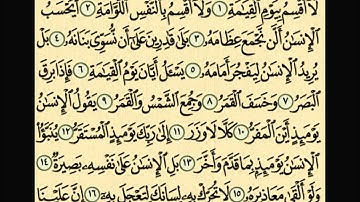 لَآ أُقْسِمُ بِيَوْمِ ٱلْقِيَٰمَةِ ١ وَلَآ أُقْسِمُ بِٱلنَّفْسِ ٱللَّوَّامَةِ ٢ أَيَحْسَبُ
ٱلْإِنسَٰنُ أَلَّن نَّجْمَعَ عِظَامَهُۥ ٣ بَلَىٰ قَٰدِرِينَ عَلَىٰٓ أَن نُّسَوِّىَ بَنَانَهُۥ ٤ بَلْ
يُرِيدُ ٱلْإِنسَٰنُ لِيَفْجُرَ أَمَامَهُۥ ٥ يَسْـَٔلُ أَيَّانَ يَوْمُ ٱلْقِيَٰمَةِ ٦ فَإِذَا بَرِقَ
ٱلْبَصَرُ ٧ وَخَسَفَ ٱلْقَمَرُ ٨ وَجُمِعَ ٱلشَّمْسُ وَٱلْقَمَرُ ٩ يَقُولُ ٱلْإِنسَٰنُ
يَوْمَئِذٍ أَيْنَ ٱلْمَفَرُّ ١٠ كَلَّا لَا وَزَرَ ١١ إِلَىٰ رَبِّكَ يَوْمَئِذٍ ٱلْمُسْتَقَرُّ ١٢ يُنَبَّؤُا۟
ٱلْإِنسَٰنُ يَوْمَئِذٍۭ بِمَا قَدَّمَ وَأَخَّرَ ١٣ بَلِ ٱلْإِنسَٰنُ عَلَىٰ نَفْسِهِۦ بَصِيرَةٌ ١٤
وَلَوْ أَلْقَىٰ مَعَاذِيرَهُۥ ١٥ لَا تُحَرِّكْ بِهِۦ لِسَانَكَ لِتَعْجَلَ بِهِۦٓ ١٦ إِنَّ عَلَيْنَا